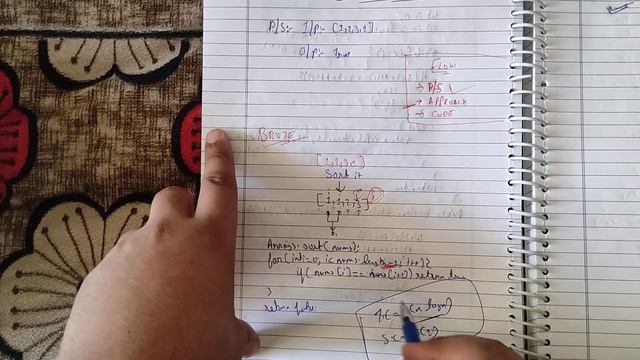 P/S:- I/P:- [1,2,3,1]
O/P:- True
FLOW
→ P/S
→ APPROACH
→ CODE
BRUTE
[1,2,3,1]
Sort it
[1,1,2,3]
Arrays.sort(nums);
for(int i=0; i<nums.length-1; i++){
if(nums[i]== nums[i+1]) return true
}
return false;
(n logn)